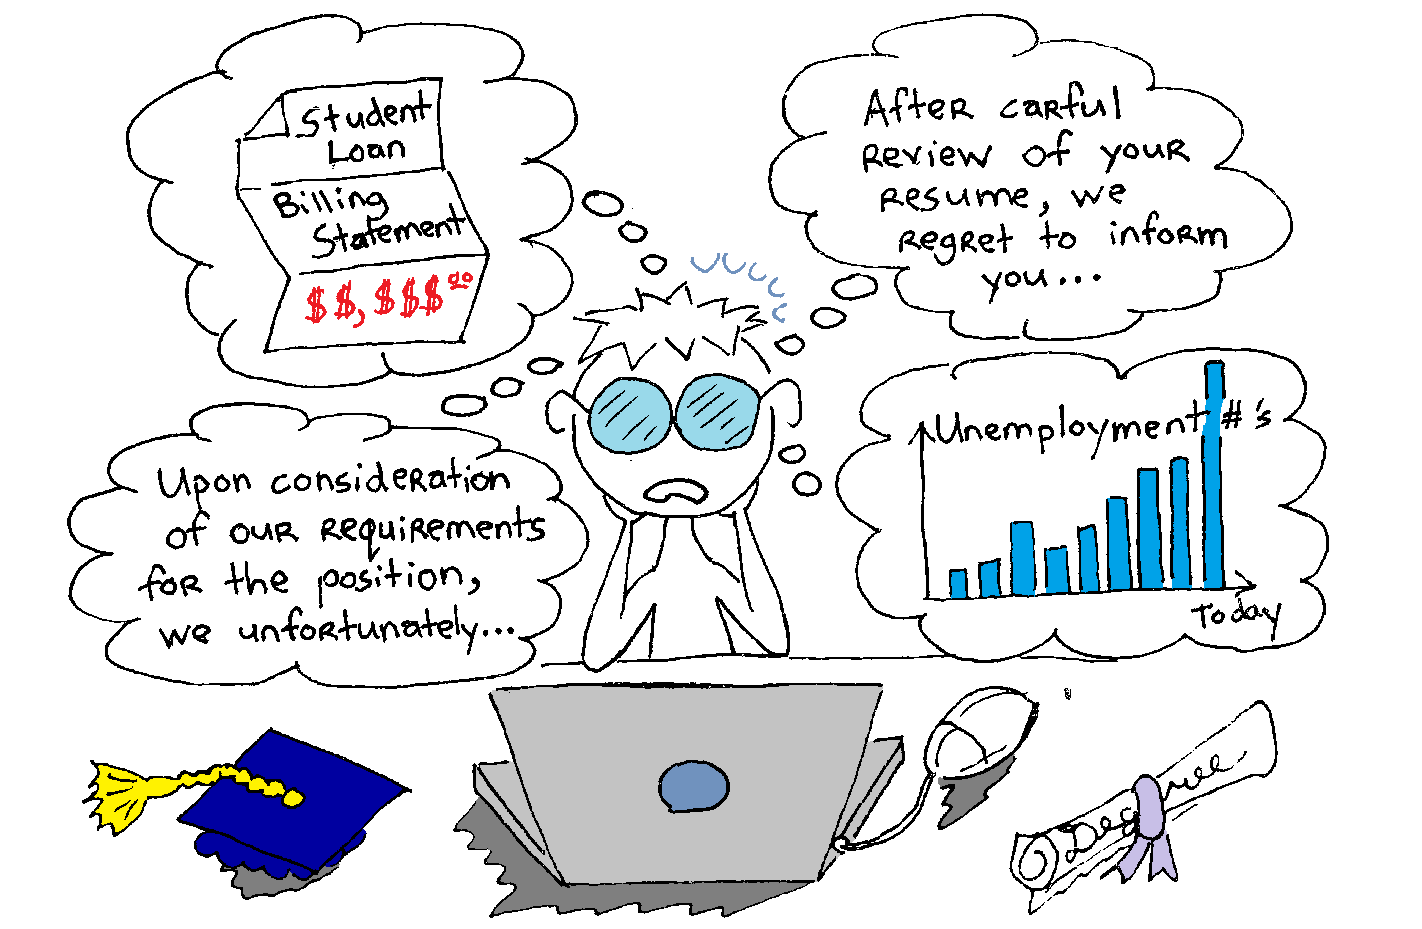 Student
Loan
Billing
Statement
$$,$$$ 00
After carful
review of your
resume, we
regret to inform
you...
Upon consideration
of our requirements
for the position,
we unfortunately...
Unemployment #'s
Today
Degree